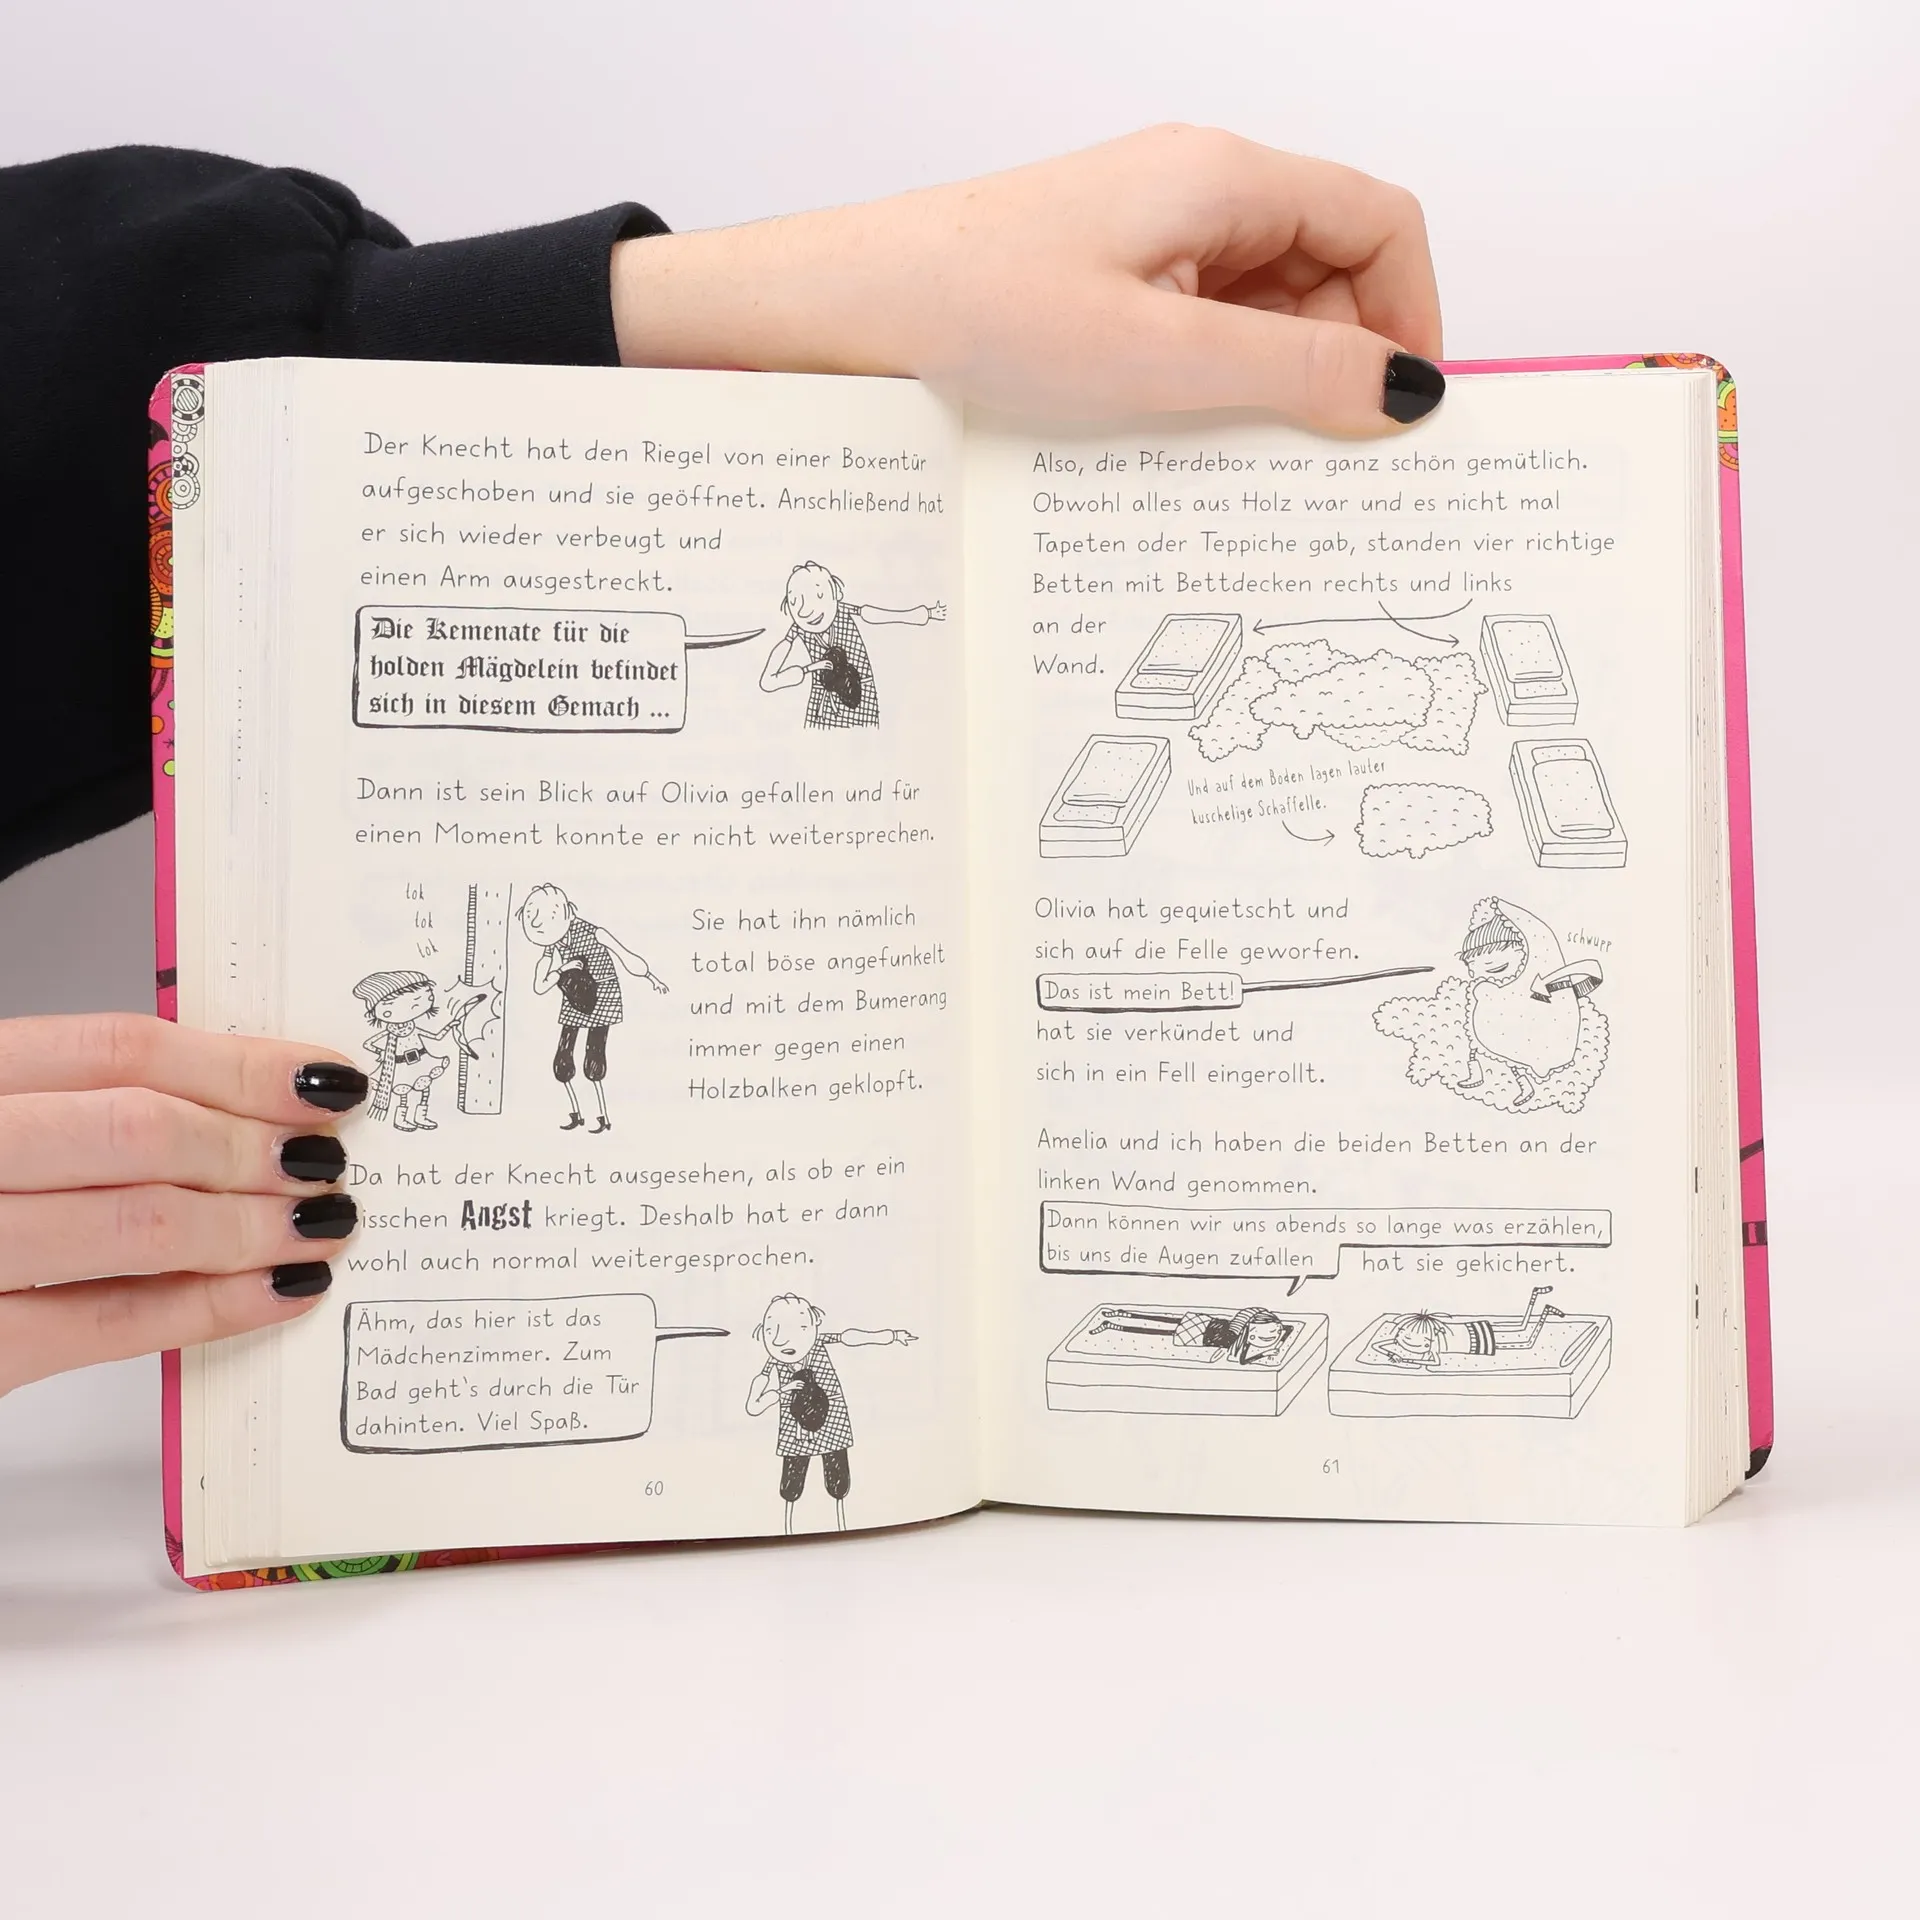 Der Knecht hat den Riegel von einer Boxentür
aufgeschoben und sie geöffnet. Anschließend hat
er sich wieder verbeugt und
einen Arm ausgestreckt.
Die Kemenate für die
holden Mägdelein befindet
sich in diesem Gemach ...
Dann ist sein Blick auf Olivia gefallen und für
einen Moment konnte er nicht weitersprechen.
tok
tok
tok
Sie hat ihn nämlich
total böse angefunkelt
und mit dem Bumerang
immer gegen einen
Holzbalken geklopft.
Da hat der Knecht ausgesehen, als ob er ein
isschen Angst kriegt. Deshalb hat er dann
wohl auch normal weitergesprochen.
Ähm, das hier ist das
Mädchenzimmer. Zum
Bad geht's durch die Tür
dahinten. Viel Spaß.
60
Also, die Pferdebox war ganz schön gemütlich.
Obwohl alles aus Holz war und es nicht mal
Tapeten oder Teppiche gab, standen vier richtige
Betten mit Bettdecken rechts und links
an der
Wand.
Und auf dem Boden lagen lauter
kuschelige Schaffelle.
Olivia hat gequietscht und
sich auf die Felle geworfen.
schwupp
Das ist mein Bett!
hat sie verkündet und
sich in ein Fell eingerollt.
Amelia und ich haben die beiden Betten an der
linken Wand genommen.
Dann können wir uns abends so lange was erzählen,
bis uns die Augen zufallen hat sie gekichert.
61